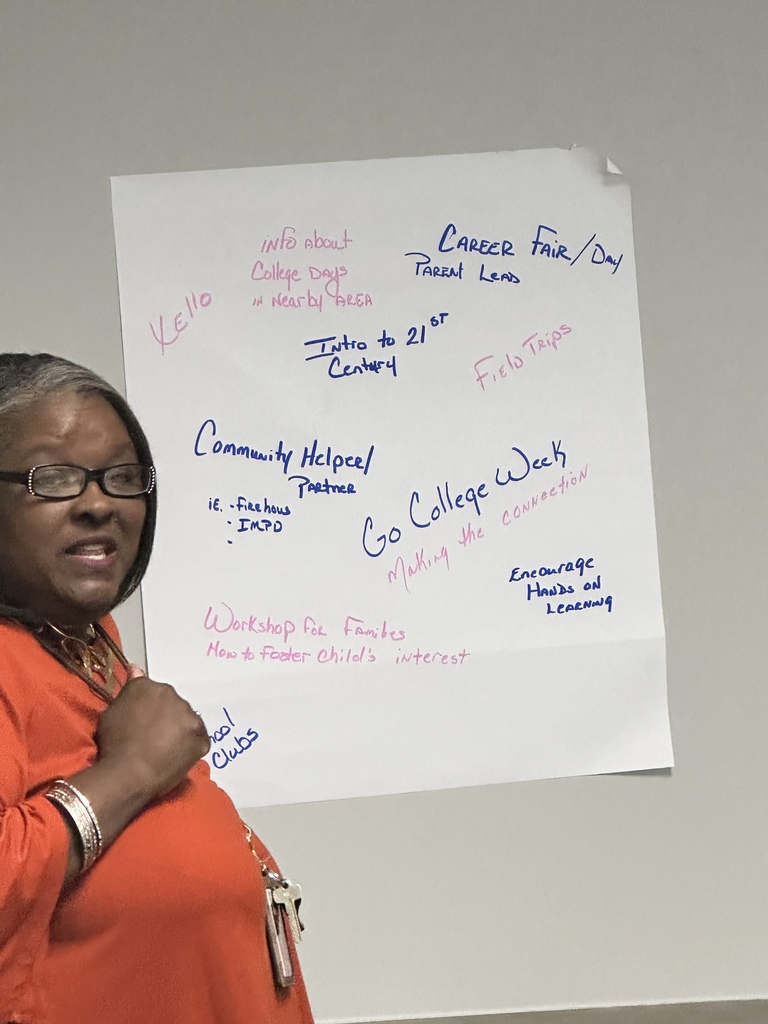 info About
College Days
in Nearby AREA
CAREER FAIR/DAY
PARENT LEAD
Xello
Intro to 21ST
Century
Field Trips
Community Helper/
Partner
ie. - firehous
- IMPD
-
Go College Week
Making the connection
Encourage
HANDS ON
LEARNING
Workshop for Families
How to Foster Child's interest
hool
Clubs